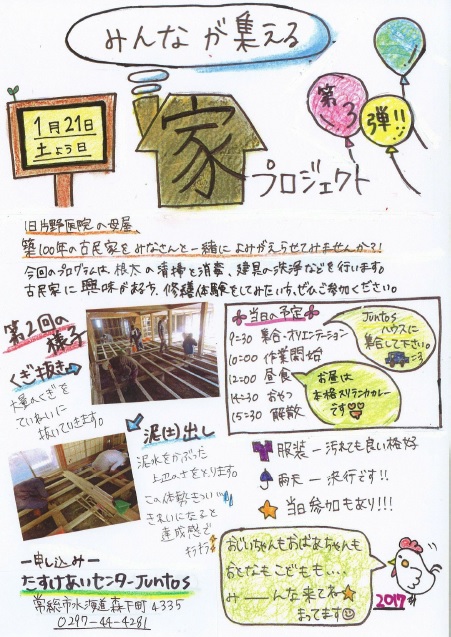 みんなが集える
家
プロジェクト
第3
弾!!
1月21日
土よう日
旧片野医院の母屋、
築100年の古民家をみなさんと一緒によみがえらせてみませんか?!
今回のプログラムは、根太の清掃と消毒、建具の洗浄などを行います。
古民家に興味がある方、修繕体験をしてみたい方、ぜひご参加ください。
第2回の
様子
くぎ抜き
大量のくぎを
ていねいに
抜いていきます。
泥(土)出し
泥水をかぶった
上辺の土をとります。
この体勢きつい…
きれいになると
達成感で
キラキラ
当日の予定
9:30 集合・オリエンテーション
10:00 作業開始
12:00 昼食
14:30 おやつ
15:30 解散
Juntos
ハウスに
集合して下さい。
お昼は
本格スリランカカレー
です
服装ー汚れても良い格好
雨天ー決行です!!
当日参加もあり!!!
ー申し込みー
たすけあいセンターJuntos
常総市水海道森下町4335
0297-44-4281
おじいちゃんもおばあちゃんも
おとなもこどもも・・・・
みーーんな来てね
まってます
2017